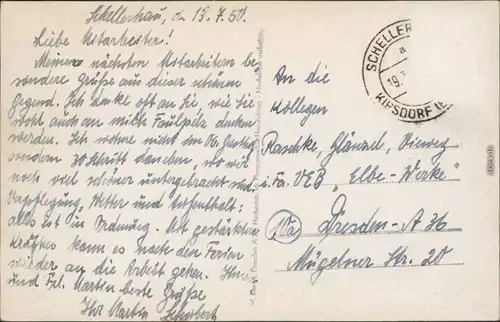 Schellerhau, d. 19.7.50.
Liebe Mitarbeiter!
Meinen nächsten Mitarbeitern be-
sondere Grüße aus dieser schönen
Gegend. Ich denke oft an Sie, wie Sie
wohl auch an mich Faulpelz denken
werden. Ich wohne nicht im
sondern 30 Schritt daneben, wo wir
noch viel schöner untergebracht sind.
Verpflegung, Wetter und Aufenthalt:
alles ist in Ordnung. Mit gestärkten
Kräften kann es nach den Ferien
wieder an die Arbeit gehen. Ihnen
und Frl. Martin beste Grüße
Ihr Martin
An die
Kollegen
Raschke, Glänzel, Vieweg
i. Fa. VEB "Elbe-Werke"
(10a) Dresden-A 36
Mügelner Str. 20
SCHELLER
a
19.
KIPSDORF